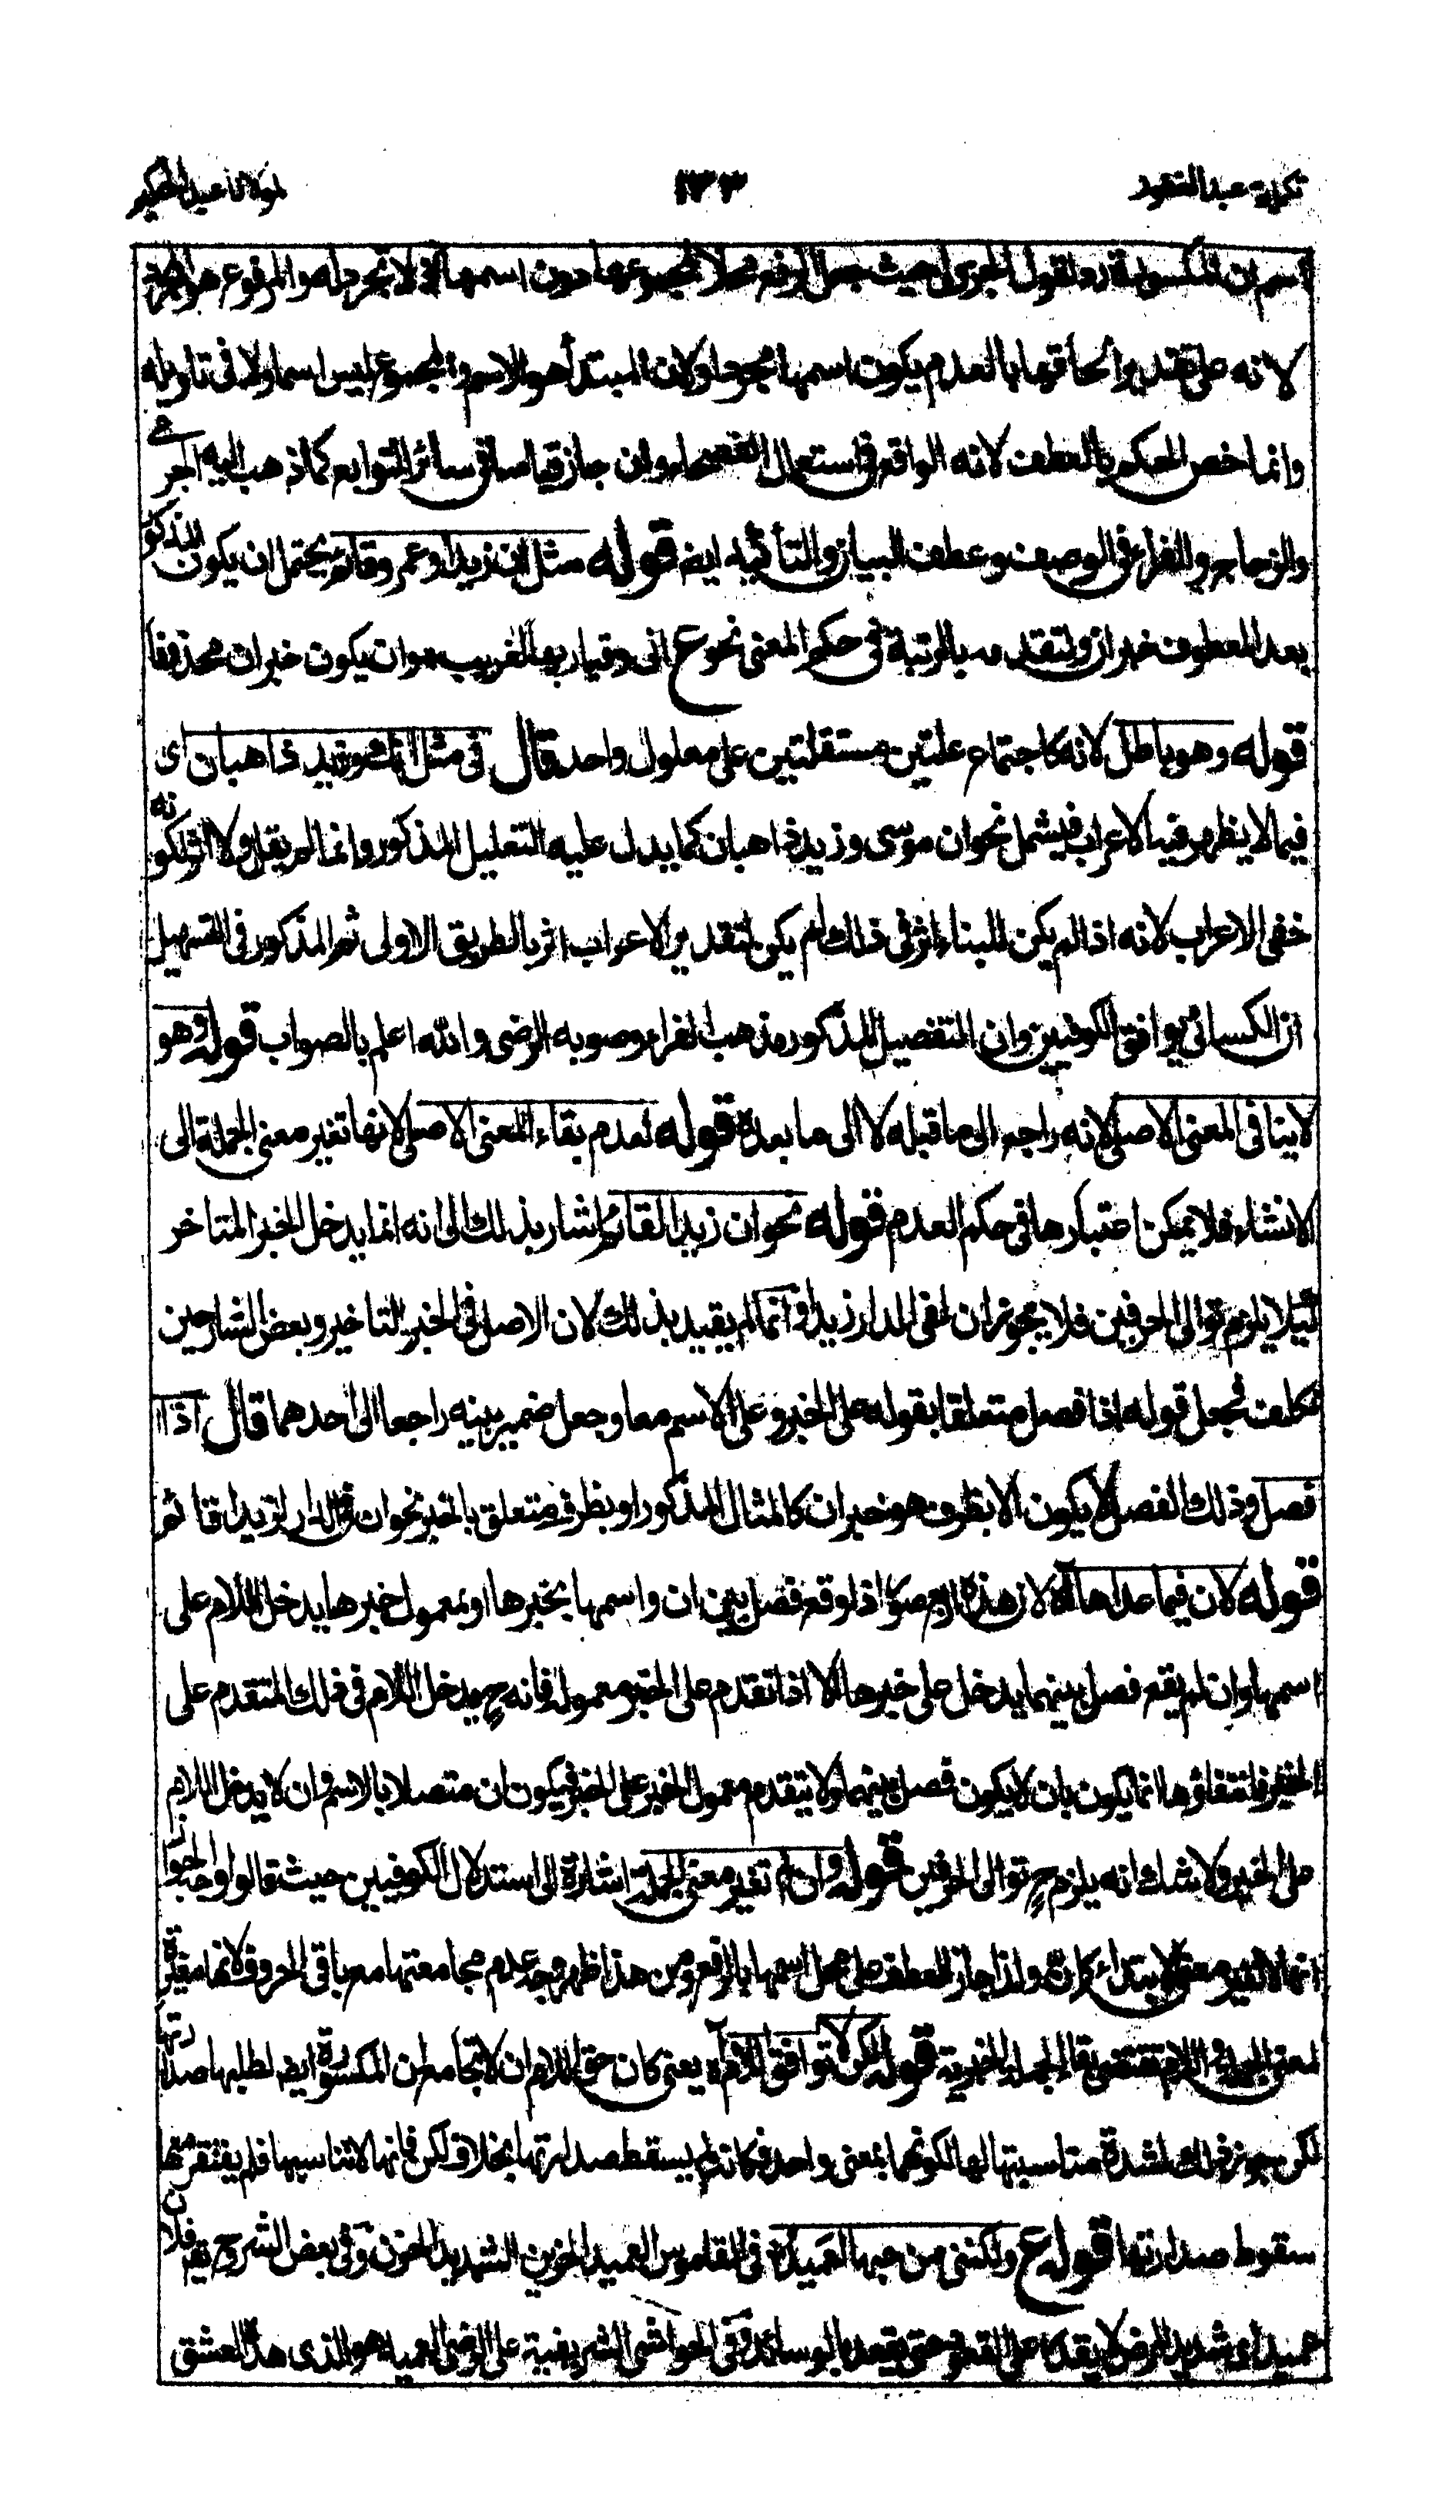 تكملة عبد الغفور ١٣٣ لمولانا عبد الحكيم
اسم ان المكسورة رد لقول الجزولي حيث جعل الرفع محلا لمجموعها دون اسمها لانه لا تجرد له والمرفوع هو المجرد
لانه على تقدير الحاقها بالعدم يكون اسمها مجردا ولان المبتدأ هو الاسم والمجموع ليس اسما ولا في تاويله
وانما خص الحكم بالعطف لانه الواقع في استعمال الفصحاء وان جاز قياسا في سائر التوابع كما ذهب اليه الجرمي
والزجاج والفراء في الوصف وعطف البيان والتأكيد ايضا قوله مثل ان زيدا وعمرو قائم يحتمل ان يكون المذكور
بعد المعطوف خبر ان ولتقدمه بالرتبة في حكم المعنى نحو ع اني وقيار بها لغريب وان يكون خبر ان محذوفا
قوله وهو باطل لانه كاجتماع علتين مستقلتين على معلول واحد قال في مثل انك وزيد ذاهبان اي
فيما لا يظهر فيه الاعراب فيشمل نحو ان موسى وزيد ذاهبان كما يدل عليه التعليل المذكور وانما لم يقل ولا اثر لكونه
خفي الاعراب لانه اذا لم يكن للبناء اثر في ذلك لم يكن لتقدير الاعراب اثر بالطريق الاولى ثم المذكور في التسهيل
ان الكسائي يوافق الكوفيين وان التفصيل المذكور مذهب الفراء وصوبه الرضي والله اعلم بالصواب قوله وهو
لا ينافي المعنى الاصلي لانه راجع الى ما قبله لا الى ما بعده قوله لعدم بقاء المعنى الاصلي لانها تغير معنى الجملة الى
الانشاء فلا يمكن اعتبارها في حكم العدم قوله نحو ان زيدا لقائم اشار بذلك الى انه انما يدخل الخبر المتاخر
لئلا يلزم توالي الحرفين فلا يجوز ان لفي الدار زيدا وانما لم يقيد بذلك لان الاصل في الخبر التاخير وبعض الشارحين
تكلف فجعل قوله اذا فصل متعلقا بقوله على الخبر وعلى الاسم معا وجعل ضمير بينه راجعا الى احدهما قال اذا
فصل وذلك الفصل لا يكون الا بظرف هو خبر ان كالمثال المذكور او بظرف متعلق بالخبر نحو ان في الدار لزيدا قائم
قوله لان فيما عداها اه لان هذه اربع صور اذ لو وقع فصل بين ان واسمها بخبرها او بمعمول خبرها يدخل اللام على
اسمها وان لم يقع فصل بينهما يدخل على خبرها الا اذا تقدم على الخبر معموله فانه ح يدخل اللام في ذلك المتقدم على
الخبر فانتفاؤها انما يكون بان لا يكون فصل بينهما ولا يتقدم معمول الخبر على الخبر فيكون ان متصلا بالاسم وان لا يدخل اللام
على الخبر ولا شك انه يلزم ح توالي الحرفين قوله وان لم تغير معنى الجملة اشارة الى استدلال الكوفيين حيث قالوا وجه الجواز
انها لا تغير معنى الابتداء كان ولذا جاز العطف على محل اسمها بالرفع ومن هذا ظهر وجه عدم مجامعتها مع باقي الحروف لانها مغيرة
لمعنى الجملة واللام تقتضي بقاء الجملة الخبرية قوله لكن لا توافق اللام اه يعني كان حق اللام ان لا تجامع ان المكسورة ايضا لطلبها صدارتها
لكن جوز ذلك لشدة مناسبتها لها لكونهما بمعنى واحد فكانه لم يسقط صدارتها بخلاف لكن فانها لا تناسبها فلم يغتفر معها
سقوط صدارتها قوله ع ولكنني من حبها لعميد في القاموس العميد الحزين الشديد الحزن وفي بعض الشروح يقع فلان
عميدا اي شديد المرض لا يقدر على القعود حتى يقعد بالوسائد وفي الحواشي الشريفية على الرضي العميد هو الذي هده العشق